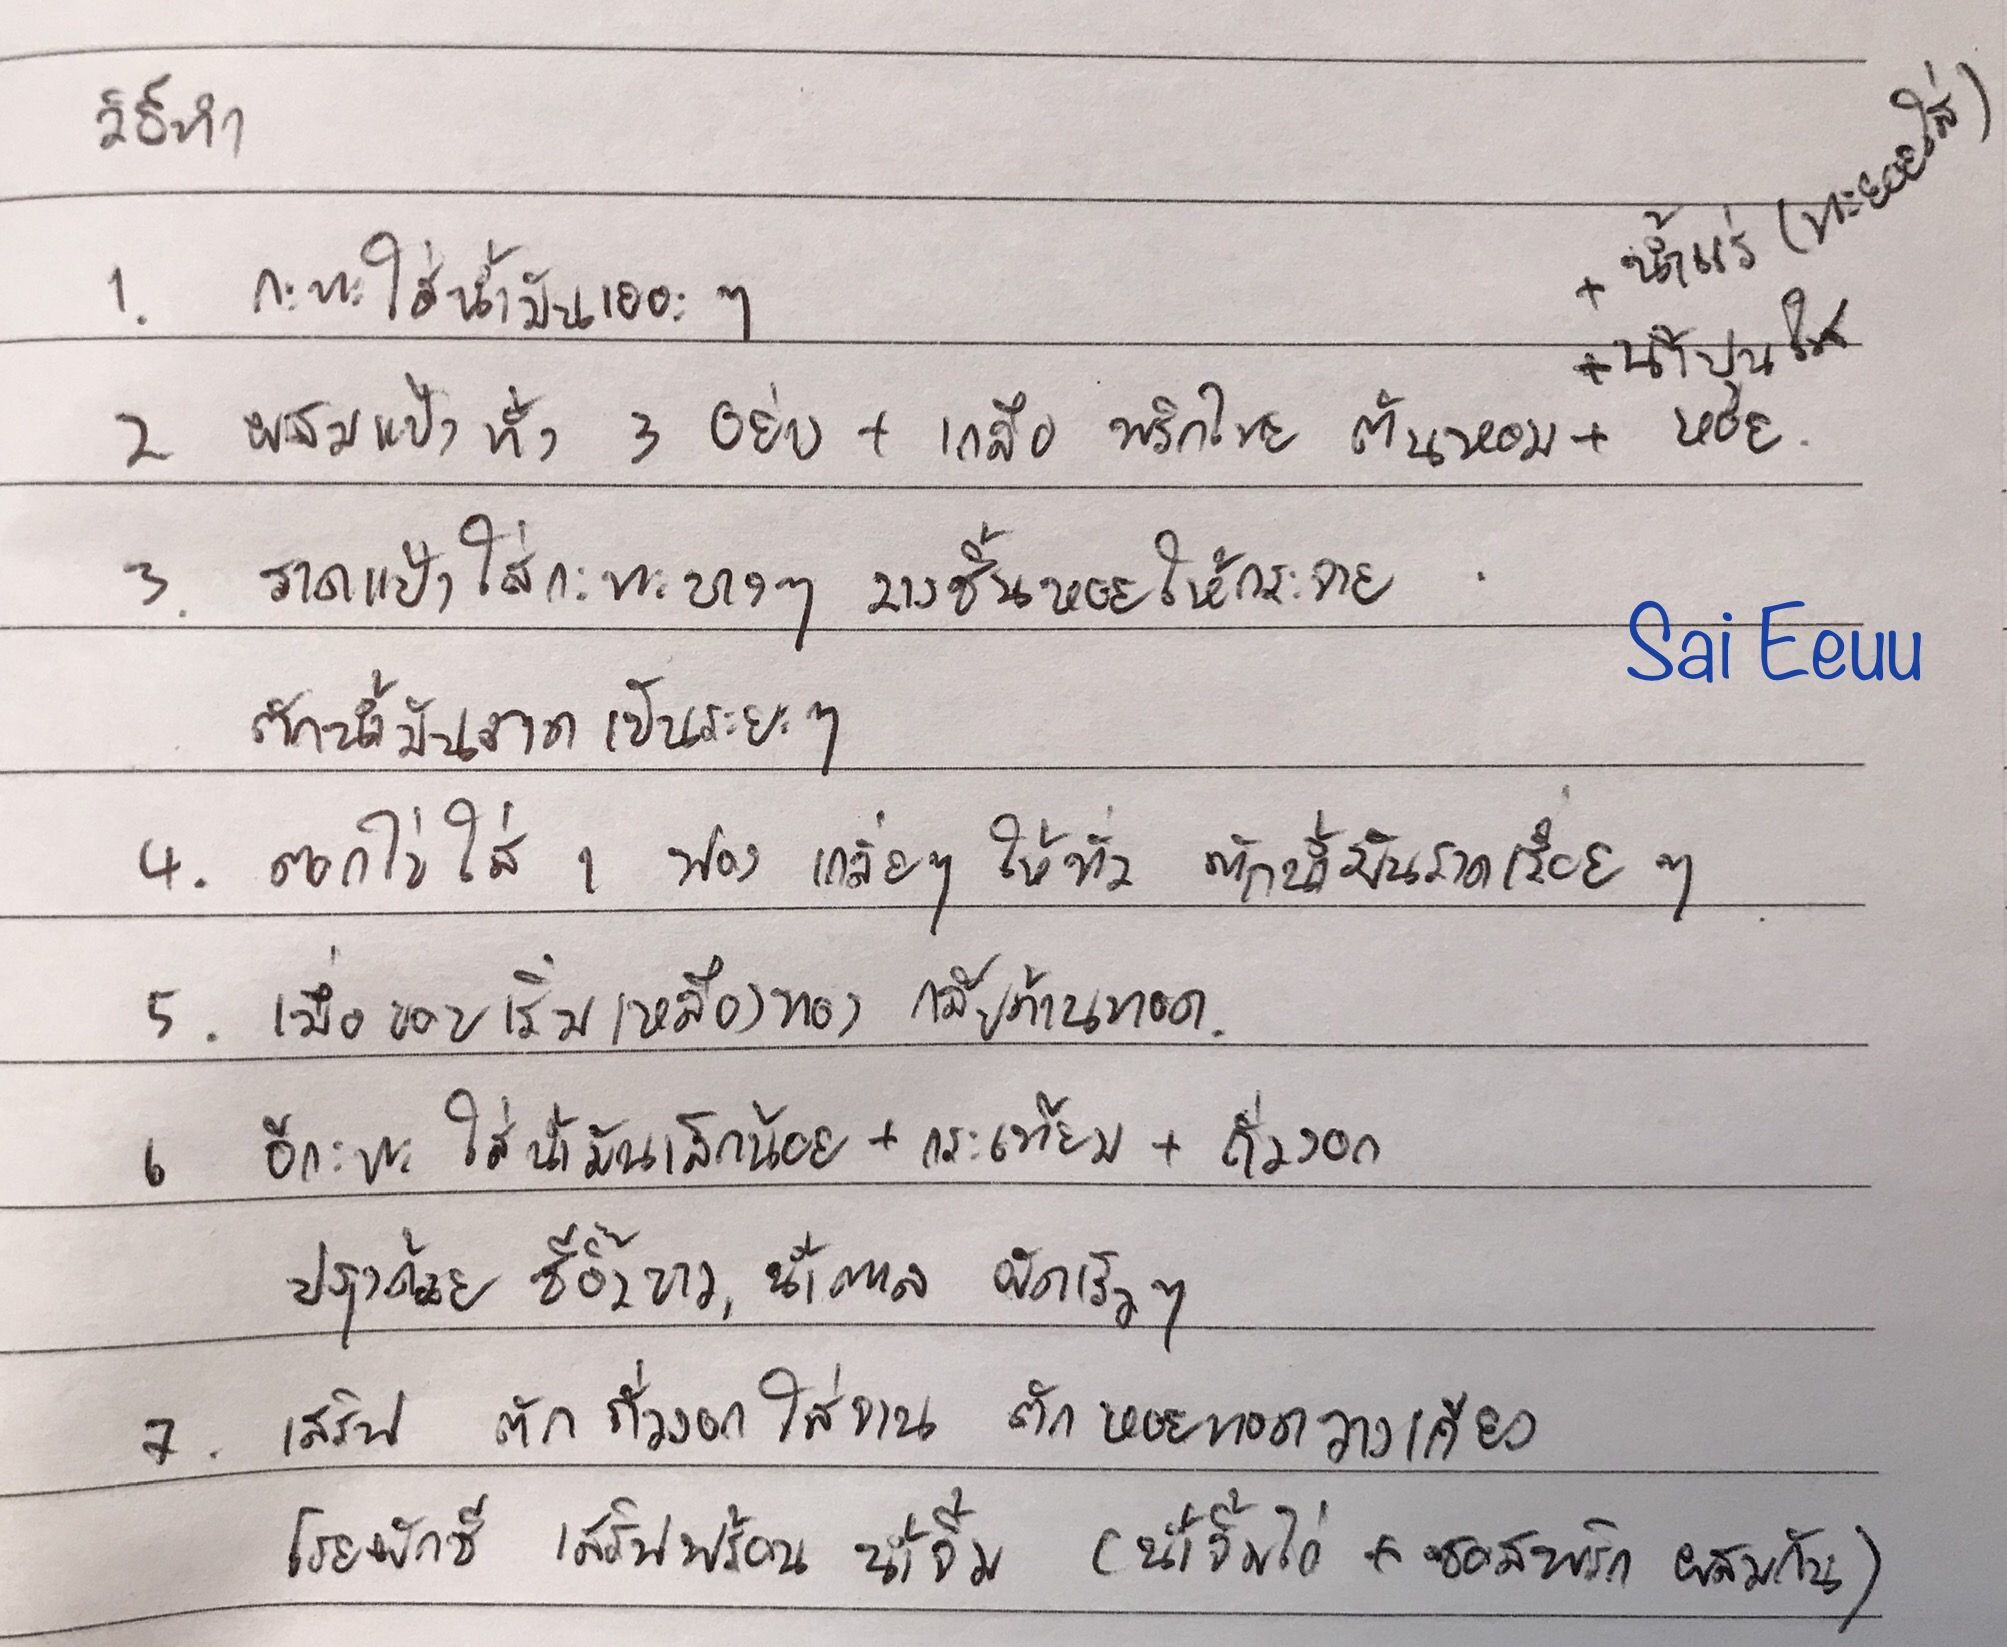 วิธีทำ
1. กะทะใส่น้ำมันเยอะๆ
+ น้ำแร่ (ทะยอยใส่)
+ น้ำปูนใส
2 ผสมแป้งทั้ง 3 อย่าง + เกลือ พริกไทย ต้นหอม + หอย.
3. ราดแป้งใส่กะทะบางๆ วางชิ้นหอยให้กระจาย
Sai Eeuu
ตักน้ำมันราด เป็นระยะๆ
4. ตอกไข่ใส่ 1 ฟอง เกลี่ยๆ ให้ทั่ว ตักน้ำมันราดเรื่อยๆ
5. เมื่อขอบเริ่มเหลืองทอง กลับด้านทอด.
6 อีกะทะ ใส่น้ำมันเล็กน้อย + กระเทียม + ถั่วงอก
ปรุงด้วย ซีอิ๊วขาว, น้ำตาล ผัดเร็วๆ
7. เสริฟ ตักถั่วงอกใส่จาน ตักหอยทอดวางเคียง
โรยผักชี เสริฟพร้อม น้ำจิ้ม (น้ำจิ้มไก่ + ซอสพริก ผสมกัน)